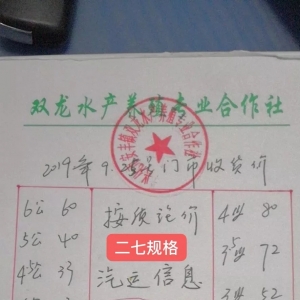 双龙水产养殖专业合作社
2019年9.25号门市收货价
6公 60 按质论价 4母 80
5公 40 二七规格 3.5母 72
4.5公 33 汽运信息 3母 52